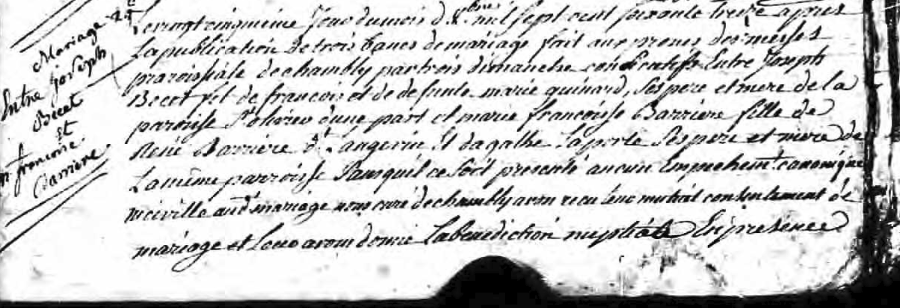 Mariage 25e
Entre joseph
Becet
Et
m francoise
Barriere
Le vingt cinquieme Jour du mois d Xbre mil sept cent soixante treize apres
La publication de trois bancs de mariage fait aux prones des messes
paroissiale de chambly par trois dimanche consecutifs Entre Joseph
Becet fils de francois et de defunte marie quinard, Ses pere et mere de la
paroisse St olivier d'une part et marie francoise Barriere fille de
René Barriere dt Langevin Et dagathe Laporte Ses pere et mere de
La même parroisse Sans quil ce soit presenté aucun Empechemt canonique
ni civille audt mariage nous curé de chambly avon recu leur mutuel consentement de
mariage et Leur avons donné La benediction nuptiale En presence